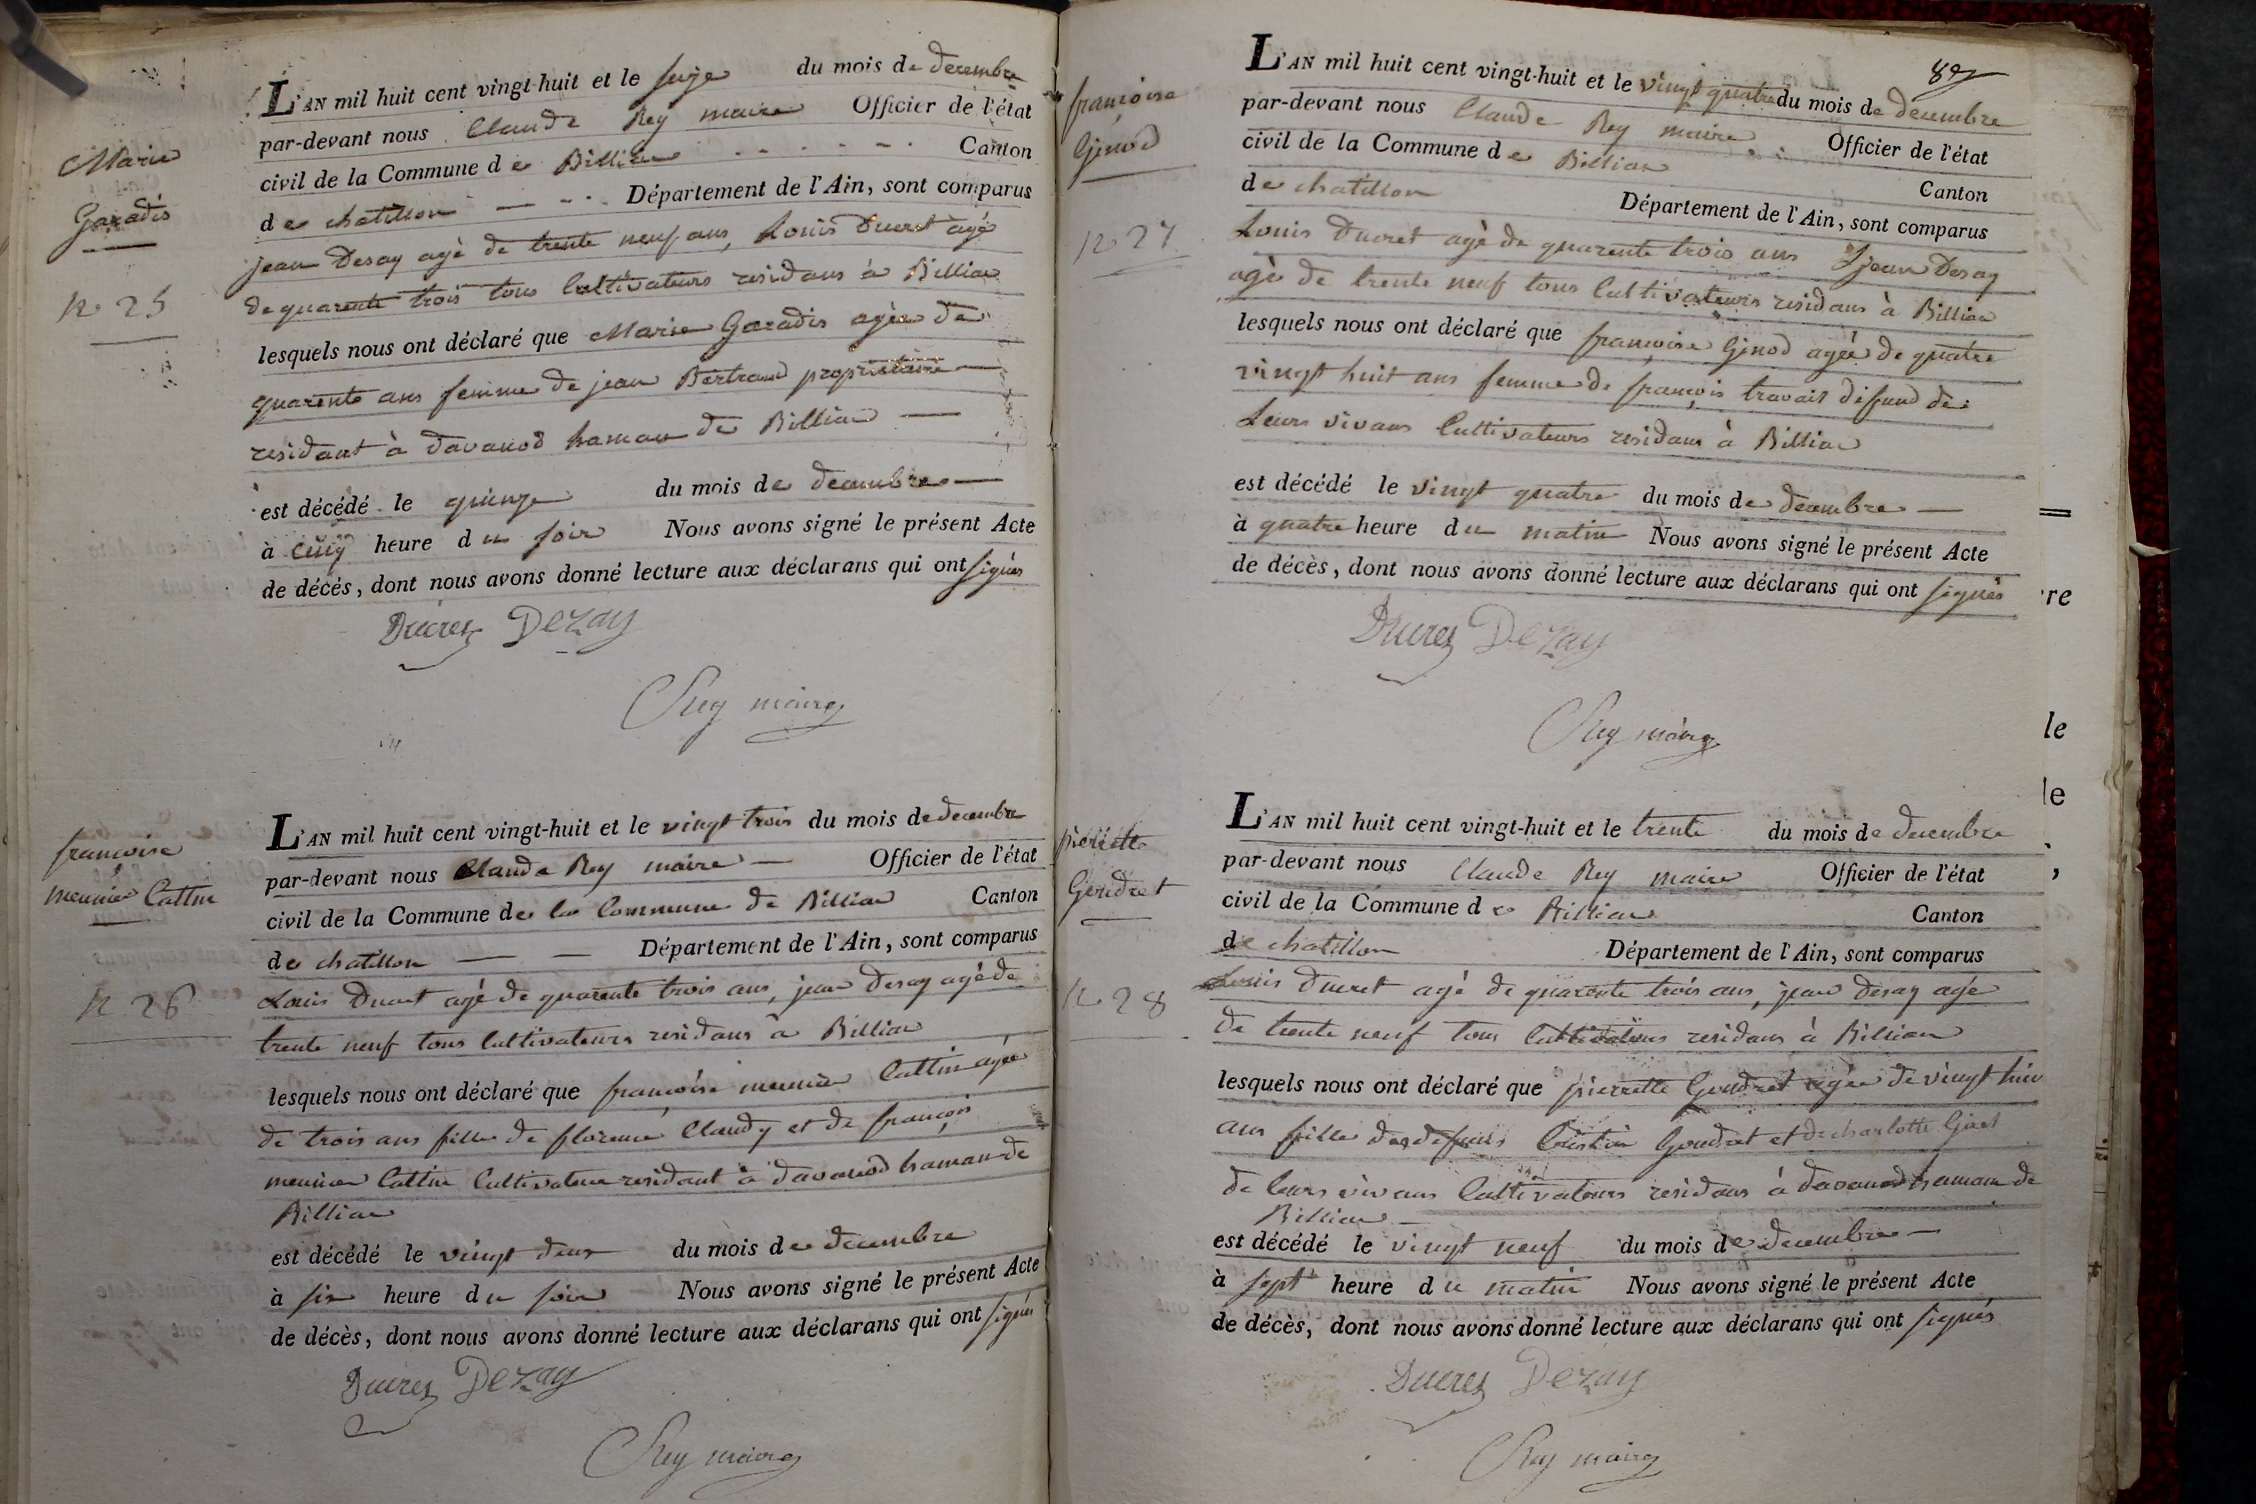 Marie
Garadis
n. 25
L'AN mil huit cent vingt-huit et le seize du mois de decembre
par-devant nous Claude Rey maire Officier de l'état
civil de la Commune de Billiac Canton
de chatillon Département de l'Ain, sont comparus
jean Desay agé de trente neuf ans, Louis Ducret agé
de quarente trois tous Cultivateurs residans à Billiac
lesquels nous ont déclaré que Marie Garadis agée de
quarente ans femme de jean Bertrand propriétaire
residant à davanod hamau de Billiac
est décédé le quinze du mois de decembre
à cinq heure du soir Nous avons signé le présent Acte
de décés, dont nous avons donné lecture aux déclarans qui ont signés
Ducret Dezay
Rey maire
francoise
meunier Cattin
n. 26
L'AN mil huit cent vingt-huit et le vingt trois du mois de decembre
par-devant nous Claude Rey maire Officier de l'état
civil de la Commune de la Commune de Billiac Canton
de chatillon Département de l'Ain, sont comparus
Louis Ducret agé de quarente trois ans, jean desay agé de
trente neuf tous Cultivateurs residans à Billiac
lesquels nous ont déclaré que françoise meunier Cattin agée
de trois ans fille de florence Claudy et de françois
meunier Cattin Cultivateur residant à davanod hamau de
Billiac
est décédé le vingt deux du mois de decembre
à six heure du soir Nous avons signé le présent Acte
de décès, dont nous avons donné lecture aux déclarans qui ont signés
Ducret Dezay
Rey maire
françoise
Ginod
n. 27
L'AN mil huit cent vingt-huit et le vingt quatre du mois de decembre
par-devant nous Claude Rey maire Officier de l'état
civil de la Commune de Billiac Canton
de chatillon Département de l'Ain, sont comparus
Louis Ducret agé de quarente trois ans jean Desay
agé de trente neuf tous Cultivateurs residans à Billiac
lesquels nous ont déclaré que françoise Ginod agée de quatre
vingt huit ans femme de françois travail défund de
Leurs vivans Cultivateurs residans à Billiac
est décédé le vingt quatre du mois de decembre
à quatre heure du matin Nous avons signé le présent Acte
de décès, dont nous avons donné lecture aux déclarans qui ont signés
Ducret Dezay
Rey maire
pierrette
Goudret
n. 28
L'AN mil huit cent vingt-huit et le trente du mois de decembre
par-devant nous Claude Rey maire Officier de l'état
civil de la Commune de Billiac Canton
de chatillon Département de l'Ain, sont comparus
Louis Ducret agé de quarente trois ans, jean Desay agé
de trente neuf tous Cultivateurs residans à Billiac
lesquels nous ont déclaré que pierrette Goudret agée de vingt huit
ans fille des defunts Goudret et de charlotte
de leurs vivans Cultivateurs residans à davanod hamau de
Billiac
est décédé le vingt neuf du mois de decembre
à sept heure du matin Nous avons signé le présent Acte
de décès, dont nous avons donné lecture aux déclarans qui ont signés
Ducret Dezay
Rey maire
re
le
le